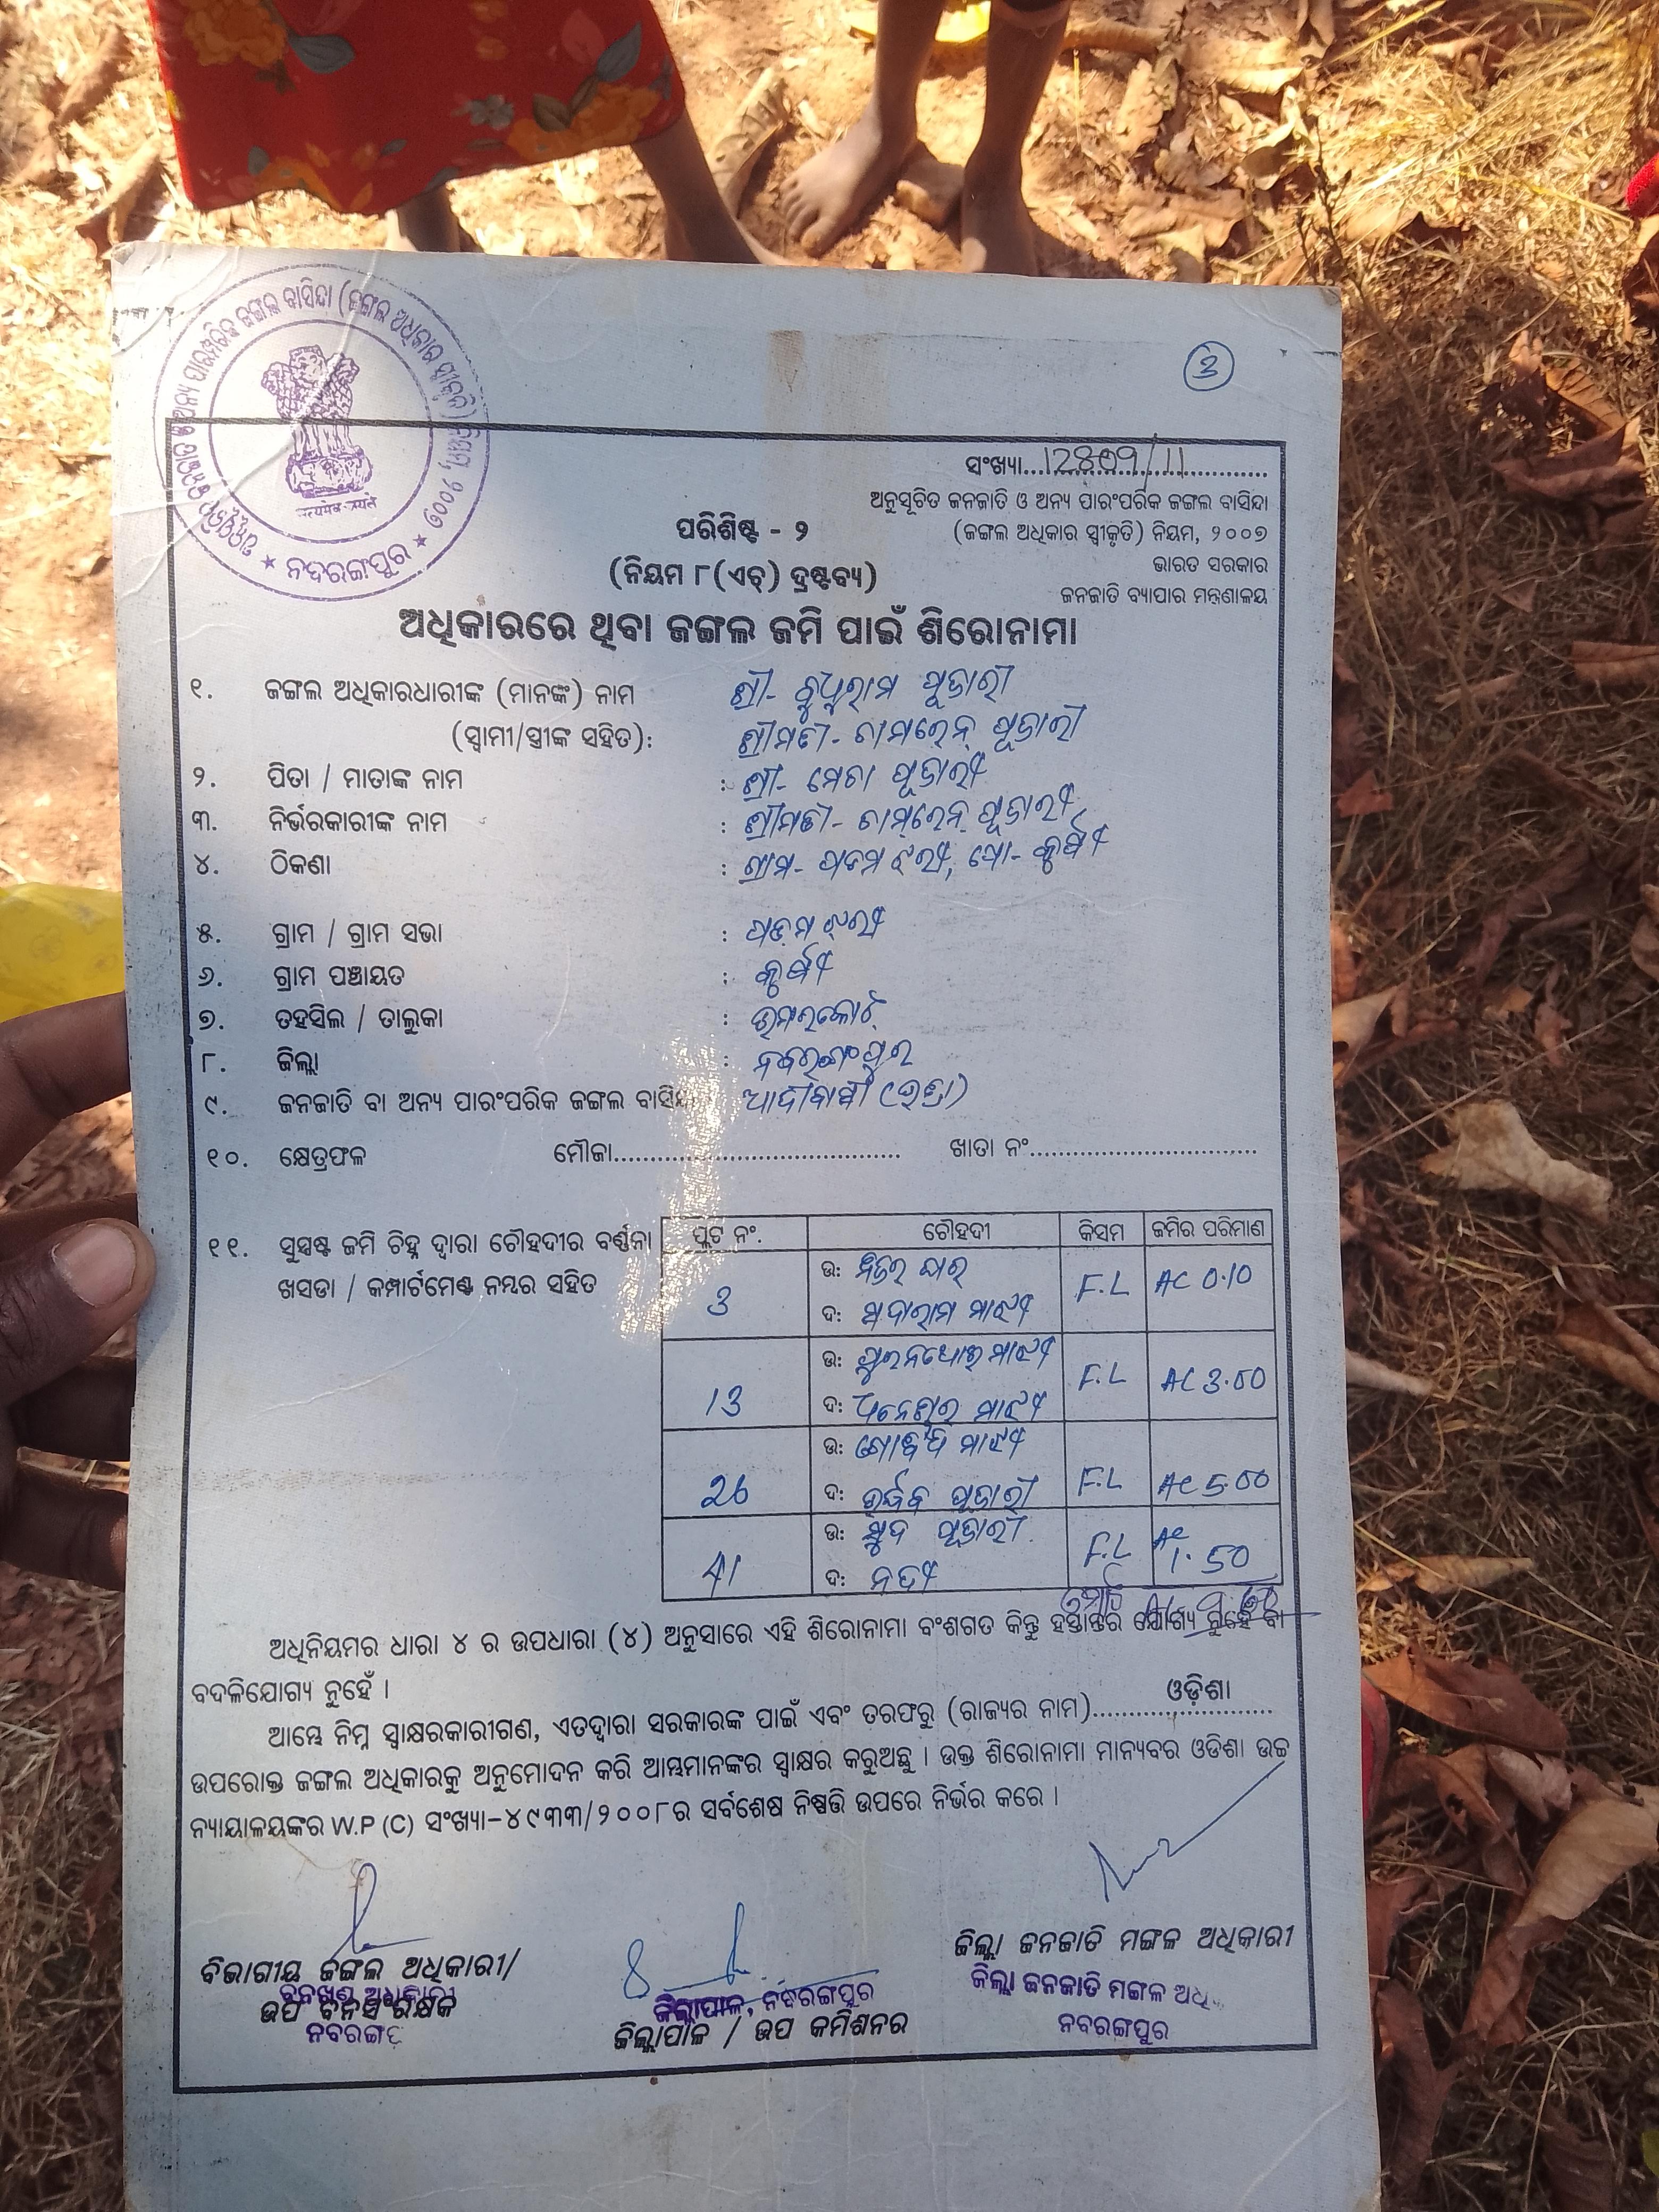 3
ସଂଖ୍ୟା...12809/11
ଅନୁସୂଚିତ ଜନଜାତି ଓ ଅନ୍ୟ ପାରଂପରିକ ଜଙ୍ଗଲ ବାସିନ୍ଦା
(ଜଙ୍ଗଲ ଅଧିକାର ସ୍ୱୀକୃତି) ନିୟମ, ୨୦୦୭
ଭାରତ ସରକାର
ଜନଜାତି ବ୍ୟାପାର ମନ୍ତ୍ରଣାଳୟ
ପରିଶିଷ୍ଟ - ୨
(ନିୟମ ୮(ଏଚ୍) ଦ୍ରଷ୍ଟବ୍ୟ)
★ ନବରଙ୍ଗପୁର ★
ଅଧିକାରରେ ଥିବା ଜଙ୍ଗଲ ଜମି ପାଇଁ ଶିରୋନାମା
୧. ଜଙ୍ଗଲ ଅଧିକାରଧାରୀଙ୍କ (ମାନଙ୍କ) ନାମ ଶ୍ରୀ- ବୁଧୁରାମ ପୂଜାରୀ
(ସ୍ୱାମୀ/ସ୍ତ୍ରୀଙ୍କ ସହିତ): ଶ୍ରୀମତୀ- ଚାମରେନ୍ ପୂଜାରୀ
୨. ପିତା / ମାତାଙ୍କ ନାମ : ଶ୍ରୀ- ମେଚା ପୂଜାରୀ
୩. ନିର୍ଭରକାରୀଙ୍କ ନାମ : ଶ୍ରୀମତୀ- ଚାମରେନ୍ ପୂଜାରୀ
୪. ଠିକଣା : ଗ୍ରାମ- ପଦମ ଝରୀ, ପୋ- କୁର୍ଷୀ
୫. ଗ୍ରାମ / ଗ୍ରାମ ସଭା : ପଦମ ଝରୀ
୬. ଗ୍ରାମ ପଞ୍ଚାୟତ : କୁର୍ଷୀ
୭. ତହସିଲ / ତାଲୁକା : ଉମରକୋଟ୍
୮. ଜିଲ୍ଲା : ନବରଙ୍ଗପୁର
୯. ଜନଜାତି ବା ଅନ୍ୟ ପାରଂପରିକ ଜଙ୍ଗଲ ବାସିନ୍ଦା ଆଦିବାସୀ
୧୦. କ୍ଷେତ୍ରଫଳ ମୌଜା....................................... ଖାତା ନଂ...............................
୧୧. ସୁସ୍ପଷ୍ଟ ଜମି ଚିହ୍ନ ଦ୍ୱାରା ଚୌହଦୀର ବର୍ଣ୍ଣନା
ଖସଡା / କମ୍ପାର୍ଟମେଣ୍ଟ ନମ୍ବର ସହିତ
ପ୍ଲଟ ନଂ. ଚୌହଦୀ କିସମ ଜମିର ପରିମାଣ
3 ଉ: ନିଜର ଘର୍ F.L AC 0.10
ଦ: ସଦାରାମ ମାଝୀ
13 ଉ: ମାଝୀ F.L AC 3.00
ଦ: ଧନେଶ୍ୱର ମାଝୀ
26 ଉ: ଗୋବିନ୍ଦ ମାଝୀ F.L AC 5.00
ଦ: ଉର୍ଦ୍ଧବ ପୂଜାରୀ
41 ଉ: ସୁଦ ପୂଜାରୀ F.L AC 1.50
ଦ: ନଦୀ
ଅଧିନିୟମର ଧାରା ୪ ର ଉପଧାରା (୪) ଅନୁସାରେ ଏହି ଶିରୋନାମା ବଂଶଗତ କିନ୍ତୁ ହସ୍ତାନ୍ତର ଯୋଗ୍ୟ ନୁହେଁ ବା
ବଦଳିଯୋଗ୍ୟ ନୁହେଁ ।
ଆମ୍ଭେ ନିମ୍ନ ସ୍ୱାକ୍ଷରକାରୀଗଣ, ଏତଦ୍ୱାରା ସରକାରଙ୍କ ପାଇଁ ଏବଂ ତରଫରୁ (ରାଜ୍ୟର ନାମ)....ଓଡ଼ିଶା....
ଉପରୋକ୍ତ ଜଙ୍ଗଲ ଅଧିକାରକୁ ଅନୁମୋଦନ କରି ଆମ୍ଭମାନଙ୍କର ସ୍ୱାକ୍ଷର କରୁଅଛୁ । ଉକ୍ତ ଶିରୋନାମା ମାନ୍ୟବର ଓଡିଶା ଉଚ୍ଚ
ନ୍ୟାୟାଳୟଙ୍କର W.P (C) ସଂଖ୍ୟା-୪୯୩୩/୨୦୦୮ର ସର୍ବଶେଷ ନିଷ୍ପତ୍ତି ଉପରେ ନିର୍ଭର କରେ ।
ବିଭାଗୀୟ ଜଙ୍ଗଲ ଅଧିକାରୀ/
ବନଖଣ୍ଡ ଅଧିକାରୀ
ଉପ ବନସଂରକ୍ଷକ
ନବରଙ୍ଗପୁ
ଜିଲ୍ଲାପାଳ, ନବରଙ୍ଗପୁର
ଜିଲ୍ଲାପାଳ / ଉପ କମିଶନର
ଜିଲ୍ଲା ଜନଜାତି ମଙ୍ଗଳ ଅଧିକାରୀ
ଜିଲ୍ଲା ଜନଜାତି ମଙ୍ଗଳ ଅଧି
ନବରଙ୍ଗପୁର